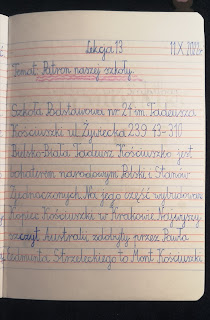 Lekcja 13 11.X.2022r.
Temat: Patron naszej szkoły.
Szkoła Podstawowa nr 24 im. Tadeusza
Kościuszki ul. Żywiecka 239 43-310
Bielsko-Biała Tadeusz Kościuszko jest
bohaterem narodowym Polski i Stanów
Zjednoczonych. Na jego cześć wybudowano
Kopiec Kościuszki w Krakowie. Najwyższy
szczyt Australii zdobyty przez Pawła
Edmunda Strzeleckiego to Mont Kościuszki